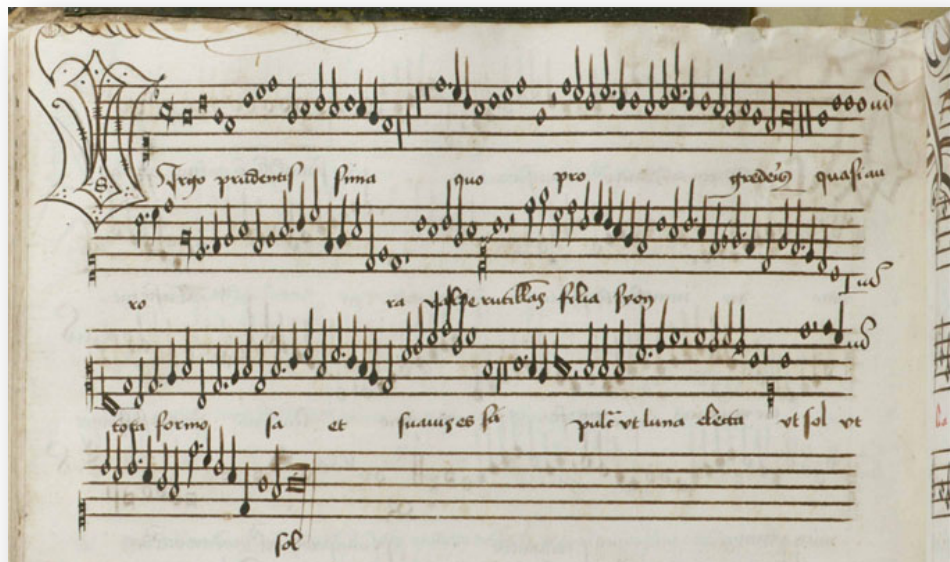 Virgo prudentis sima quo pro grederis quasi au
ro ra valde rutillans filia syon
tota formo sa et suavis es pulc ut luna electa ut sol ut
sol